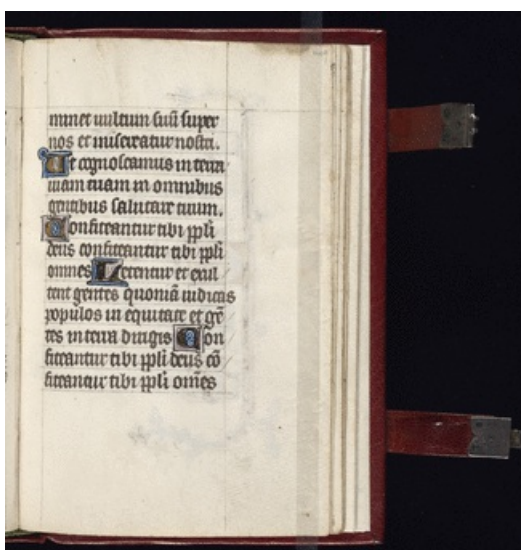 minet vultum suū super
nos et misereatur nostri.
Ut cognoscamus in terra
viam tuam in omnibus
gentibus salutare tuum.
Confiteantur tibi ppli
deus confiteantur tibi ppli
omnes Letentur et exul
tent gentes quoniā iudicas
populos in equitate et gē
tes in terra dirigis Con
fiteantur tibi ppli deus cō
fiteantur tibi ppli om̄es